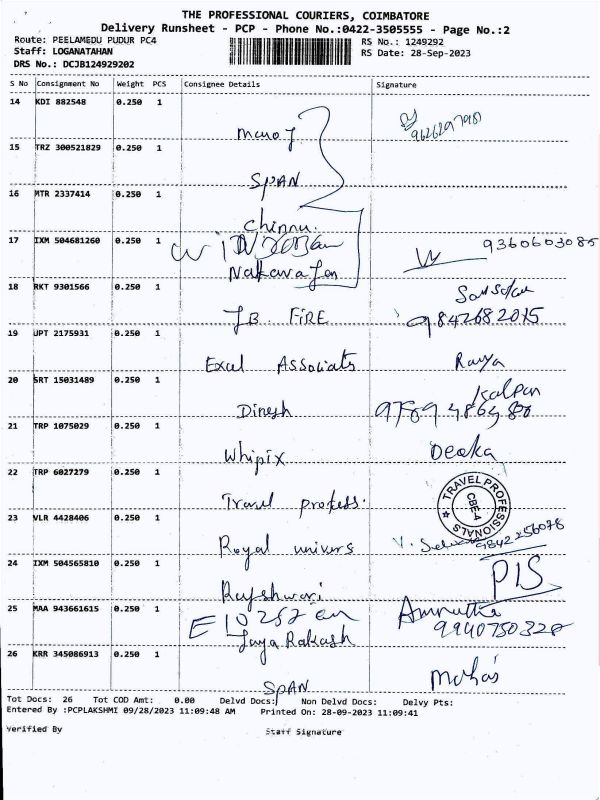 THE PROFESSIONAL COURIERS, COIMBATORE
Delivery Runsheet - PCP - Phone No.:0422-3505555 - Page No.:2
Route: PEELAMEDU PUDUR PC4 RS No.: 1249292
Staff: LOGANATAHAN RS Date: 28-Sep-2023
DRS No.: DCJB124929202
S No Consignment No Weight PCS Consignee Details Signature
14 KDI 882548 0.250 1
Manoj
15 TRZ 300521829 0.250 1
SPAN
16 MTR 2337414 0.250 1
Chinnu.
17 IXM 504681260 0.250 1 9360603085
18 RKT 9301566 0.250 1
JB. FIRE 9842682015
19 UPT 2175931 0.250 1
Excel Associats Ramya
20 SRT 15031489 0.250 1 Kalpan
Dinesh
21 TRP 1075029 0.250 1
Whipix
22 TRP 6027279 0.250 1
Travel profess. TRAVEL PROFESSIONALS CBE-4
23 VLR 4428406 0.250 1
Royal univers 9842256078
24 IXM 504565810 0.250 1
Rajeshwari
25 MAA 943661615 0.250 1 Amrutha
Jaya Rakash 9940750328
26 KRR 345086913 0.250 1
SPAN
Tot Docs: 26 Tot COD Amt: 0.00 Delvd Docs: Non Delvd Docs: Delvy Pts:
Entered By :PCPLAKSHMI 09/28/2023 11:09:48 AM Printed On: 28-09-2023 11:09:41
verified By Staff Signature